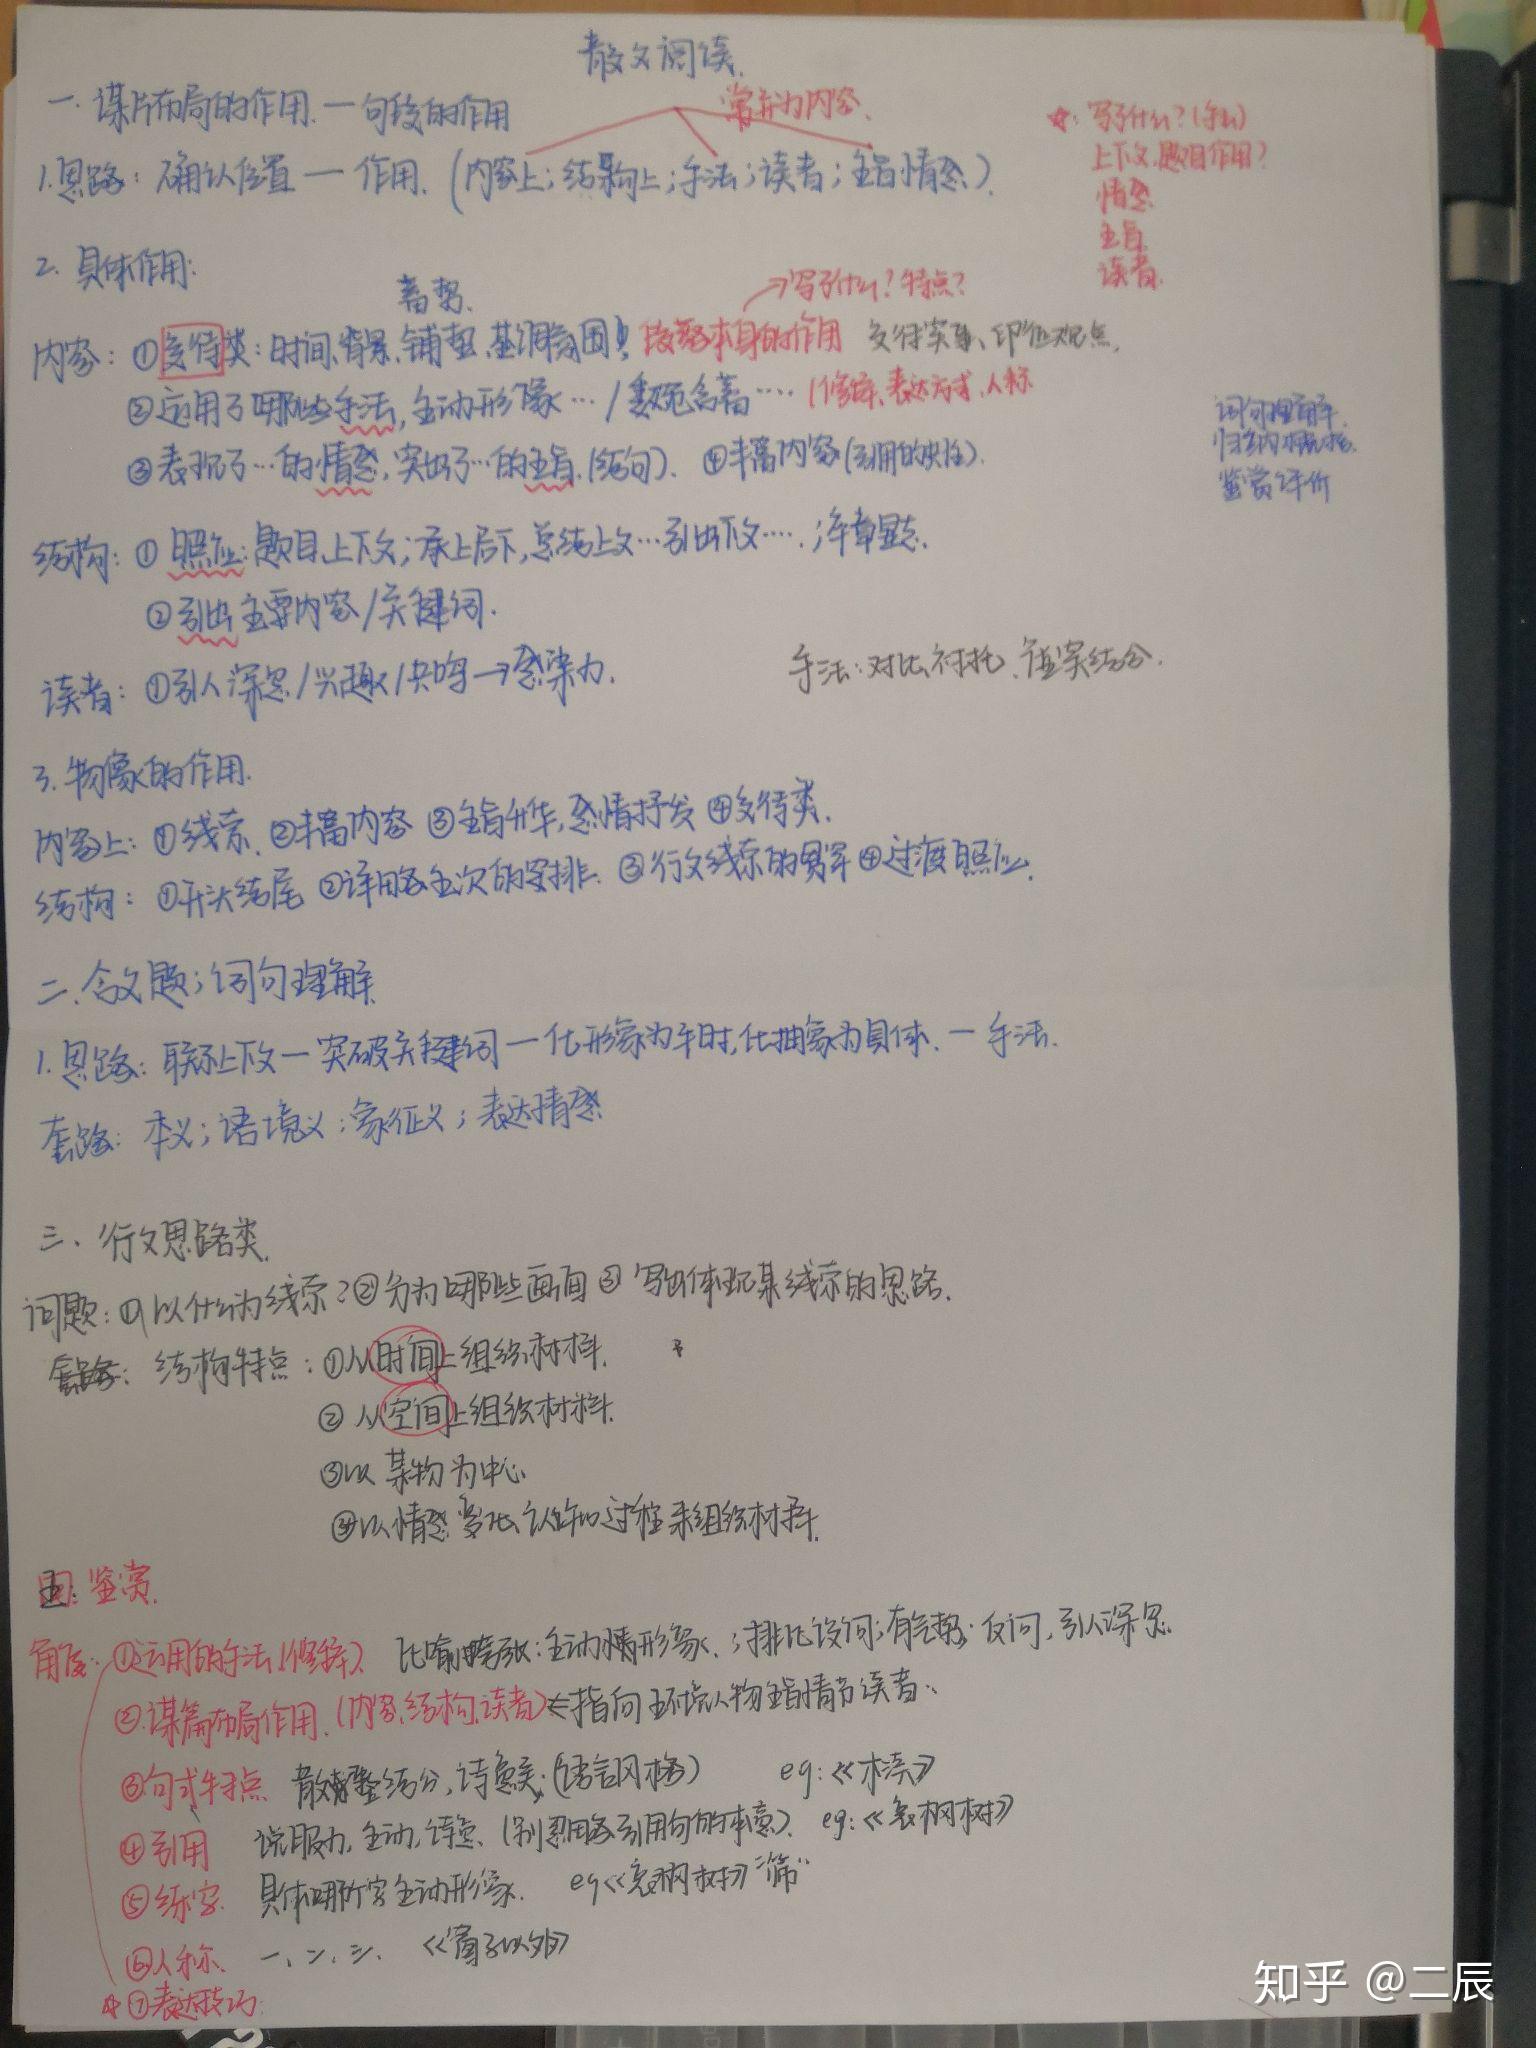 散文阅读.
一. 谋片布局的作用. 一句段的作用
常考为内容.
1.思路: 确认位置 — 作用. (内容上;结构上;手法;读者;主旨情感).
☆: 写了什么?(手法)
上下文.题目作用?
情感
主旨
读者.
2. 具体作用:
蓄势.
→写了什么?特点?
内容: ①交待类: 时间、背景、铺垫、基调氛围! 段落本身的作用 交待实事、印证观点.
②应用了哪些手法,生动形象…/委婉含蓄…. /修辞、表达方式、人称
③表现了…的情感,突出了…的主旨.(结句). ④丰富内容(引用的史注).
词句理解.
归纳内容概括.
鉴赏评价
结构: ① 照应:题目、上下文;承上启下,总结上文…引出下文….;卒章显志.
②引出主要内容/关键词.
读者: ①引人深思/兴趣/共鸣→感染力.
手法:对比、衬托、虚实结合.
3.物象的作用.
内容上: ①线索. ②丰富内容 ③主旨升华,感情抒发 ④交待类.
结构: ①开头结尾 ②详略主次的安排. ③行文线索的贯穿 ④过渡照应.
二.含义题;词句理解
1.思路: 联系上下文 — 突破关键词 — 化形象为平时,化抽象为具体. — 手法.
套路: 本义;语境义;象征义;表达情感
三、行文思路类.
问题: ①以什么为线索?②分为哪些画面 ③ 写出体现某线索的思路.
套路: 结构特点: ①从时间上组织材料.
② 从空间上组织材料.
③以某物为中心.
④以情感变化、认知过程来组织材料.
五: 鉴赏.
角度: ①运用的手法(修辞). 比喻夸张:生动形象、;排比设问;有气势;反问,引人深思
②谋篇布局作用.(内容、结构、读者)←指向环境人物主旨情节读者..
③句式特点 散整结合,诗意美.(语言风格) eg:《木渎》
④引用 说服力,生动,诗意. (别忽略引用句的本意). eg:《老枫树》
⑤练字. 具体哪个字生动形象. eg《老枫树》"筛"
⑥人称. 一、二、三. 《窗子以外》
☆⑦表达技巧:
知乎 @二辰